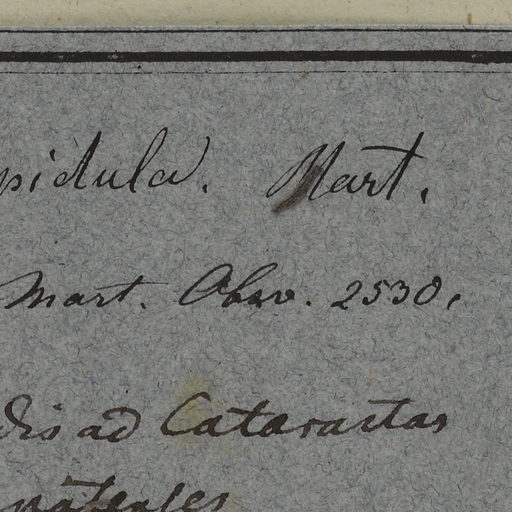 pidula. Mart.
Mart. Obsv. 2530.
dis ad Cataractas